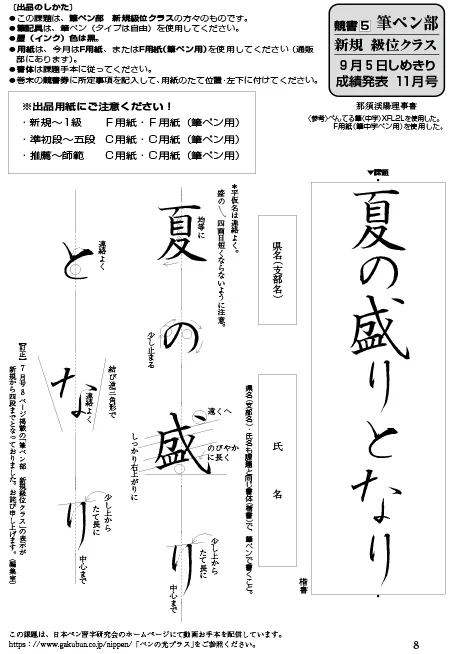 〔出品のしかた〕
●この課題は、筆ペン部 新規級位クラスの方々のものです。
●筆記具は、筆ペン(タイプは自由)を使用してください。
●墨(インク)色は黒。
●用紙は、今月はF用紙、またはF用紙(筆ペン用)を使用してください(通販部にあります)。
●書体は課題手本に従ってください。
●巻末の競書券に所定事項を記入して、用紙のたて位置・左下に付けてください。
競書5 筆ペン部
新規 級位クラス
9月5日しめきり
成績発表 11月号
那須渓陽理事書
(参考)ぺんてる筆(中字)XFL2Lを使用した。
F用紙(筆中字ペン用)を使用した。
※出品用紙にご注意ください!
・新規〜1級 F用紙・F用紙(筆ペン用)
・準初段〜五段 C用紙・C用紙(筆ペン用)
・推薦〜師範 C用紙・C用紙(筆ペン用)
▼課題
夏の盛りとなり
楷書
県名(支部名)
氏名
県名(支部名)・氏名も課題と同じ書体(楷書)で、筆ペンで書くこと。
*平仮名は連綿よく。
盛の\四画目短くならないように注意。
夏の盛り
均等に
少し止まる
遠くへ
のびやかに長く
しっかり右上がりに
少し上から
たて長に
中心まで
となり
連綿よく
結び遊三角形で
連綿よく
少し上から
たて長に
中心まで
【訂正】7月号8ページ掲載の「筆ペン部 新規級位クラス」の表示が
新規から四段までとなっておりました。お詫び申し上げます。(編集室)
この課題は、日本ペン習字研究会のホームページにて動画お手本を配信しています。
https://www.gakubun.co.jp/nippen/「ペンの光プラス」をご参照ください。
8